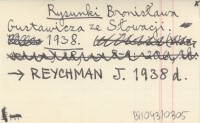 Rysunki Bronisława
Gustawicza ze Słowacji.
1938.
→ REYCHMAN J. 1938 d.
BI1043/0305